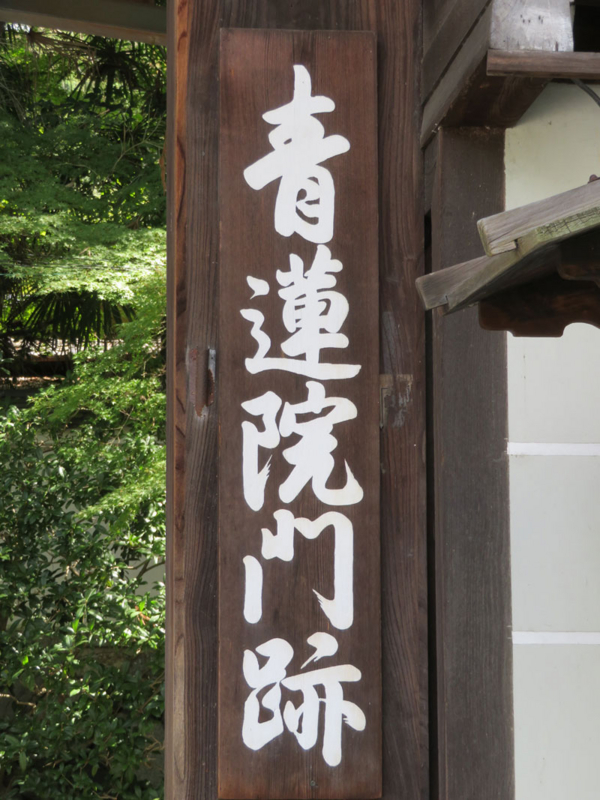 青蓮院門跡